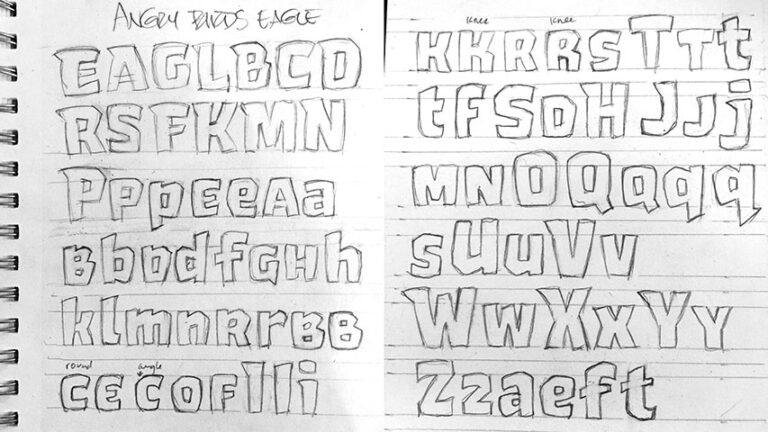 ANGRY BIRDS EAGLE
EAGLBCD
RSFKMN
PppEeAa
BbDdfGHh
klmnRrBB
round angle
CECOFlli
knee knee
KKRRSTTt
tfSDHJJj
MNOQQqq
sUuVv
WwXxYy
Zzaeft